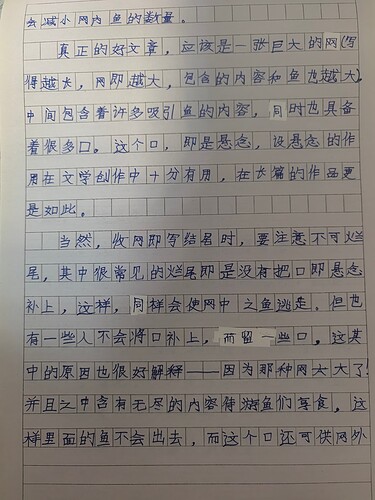 去减小网内鱼的数量。
真正的好文章，应该是一张巨大的网(写
得越长，网即越大，包含的内容和鱼也越大)
中间包含着许多吸引鱼的内容，同时也具备
着很多口。这个口，即是悬念，设悬念的作
用在文学创作中十分有用，在长篇的作品更
是如此。
当然，收网即写结尾时，要注意不可烂
尾，其中很常见的烂尾即是没有把口即悬念
补上，这样，同样会使网中之鱼逃走。但也
有一些人不会将口补上，而留一些口，这其
中的原因也很好解释——因为那种网太大了！
并且之中含有无尽的内容待游鱼们享食，这
样里面的鱼不会出去，而这个口还可供网外